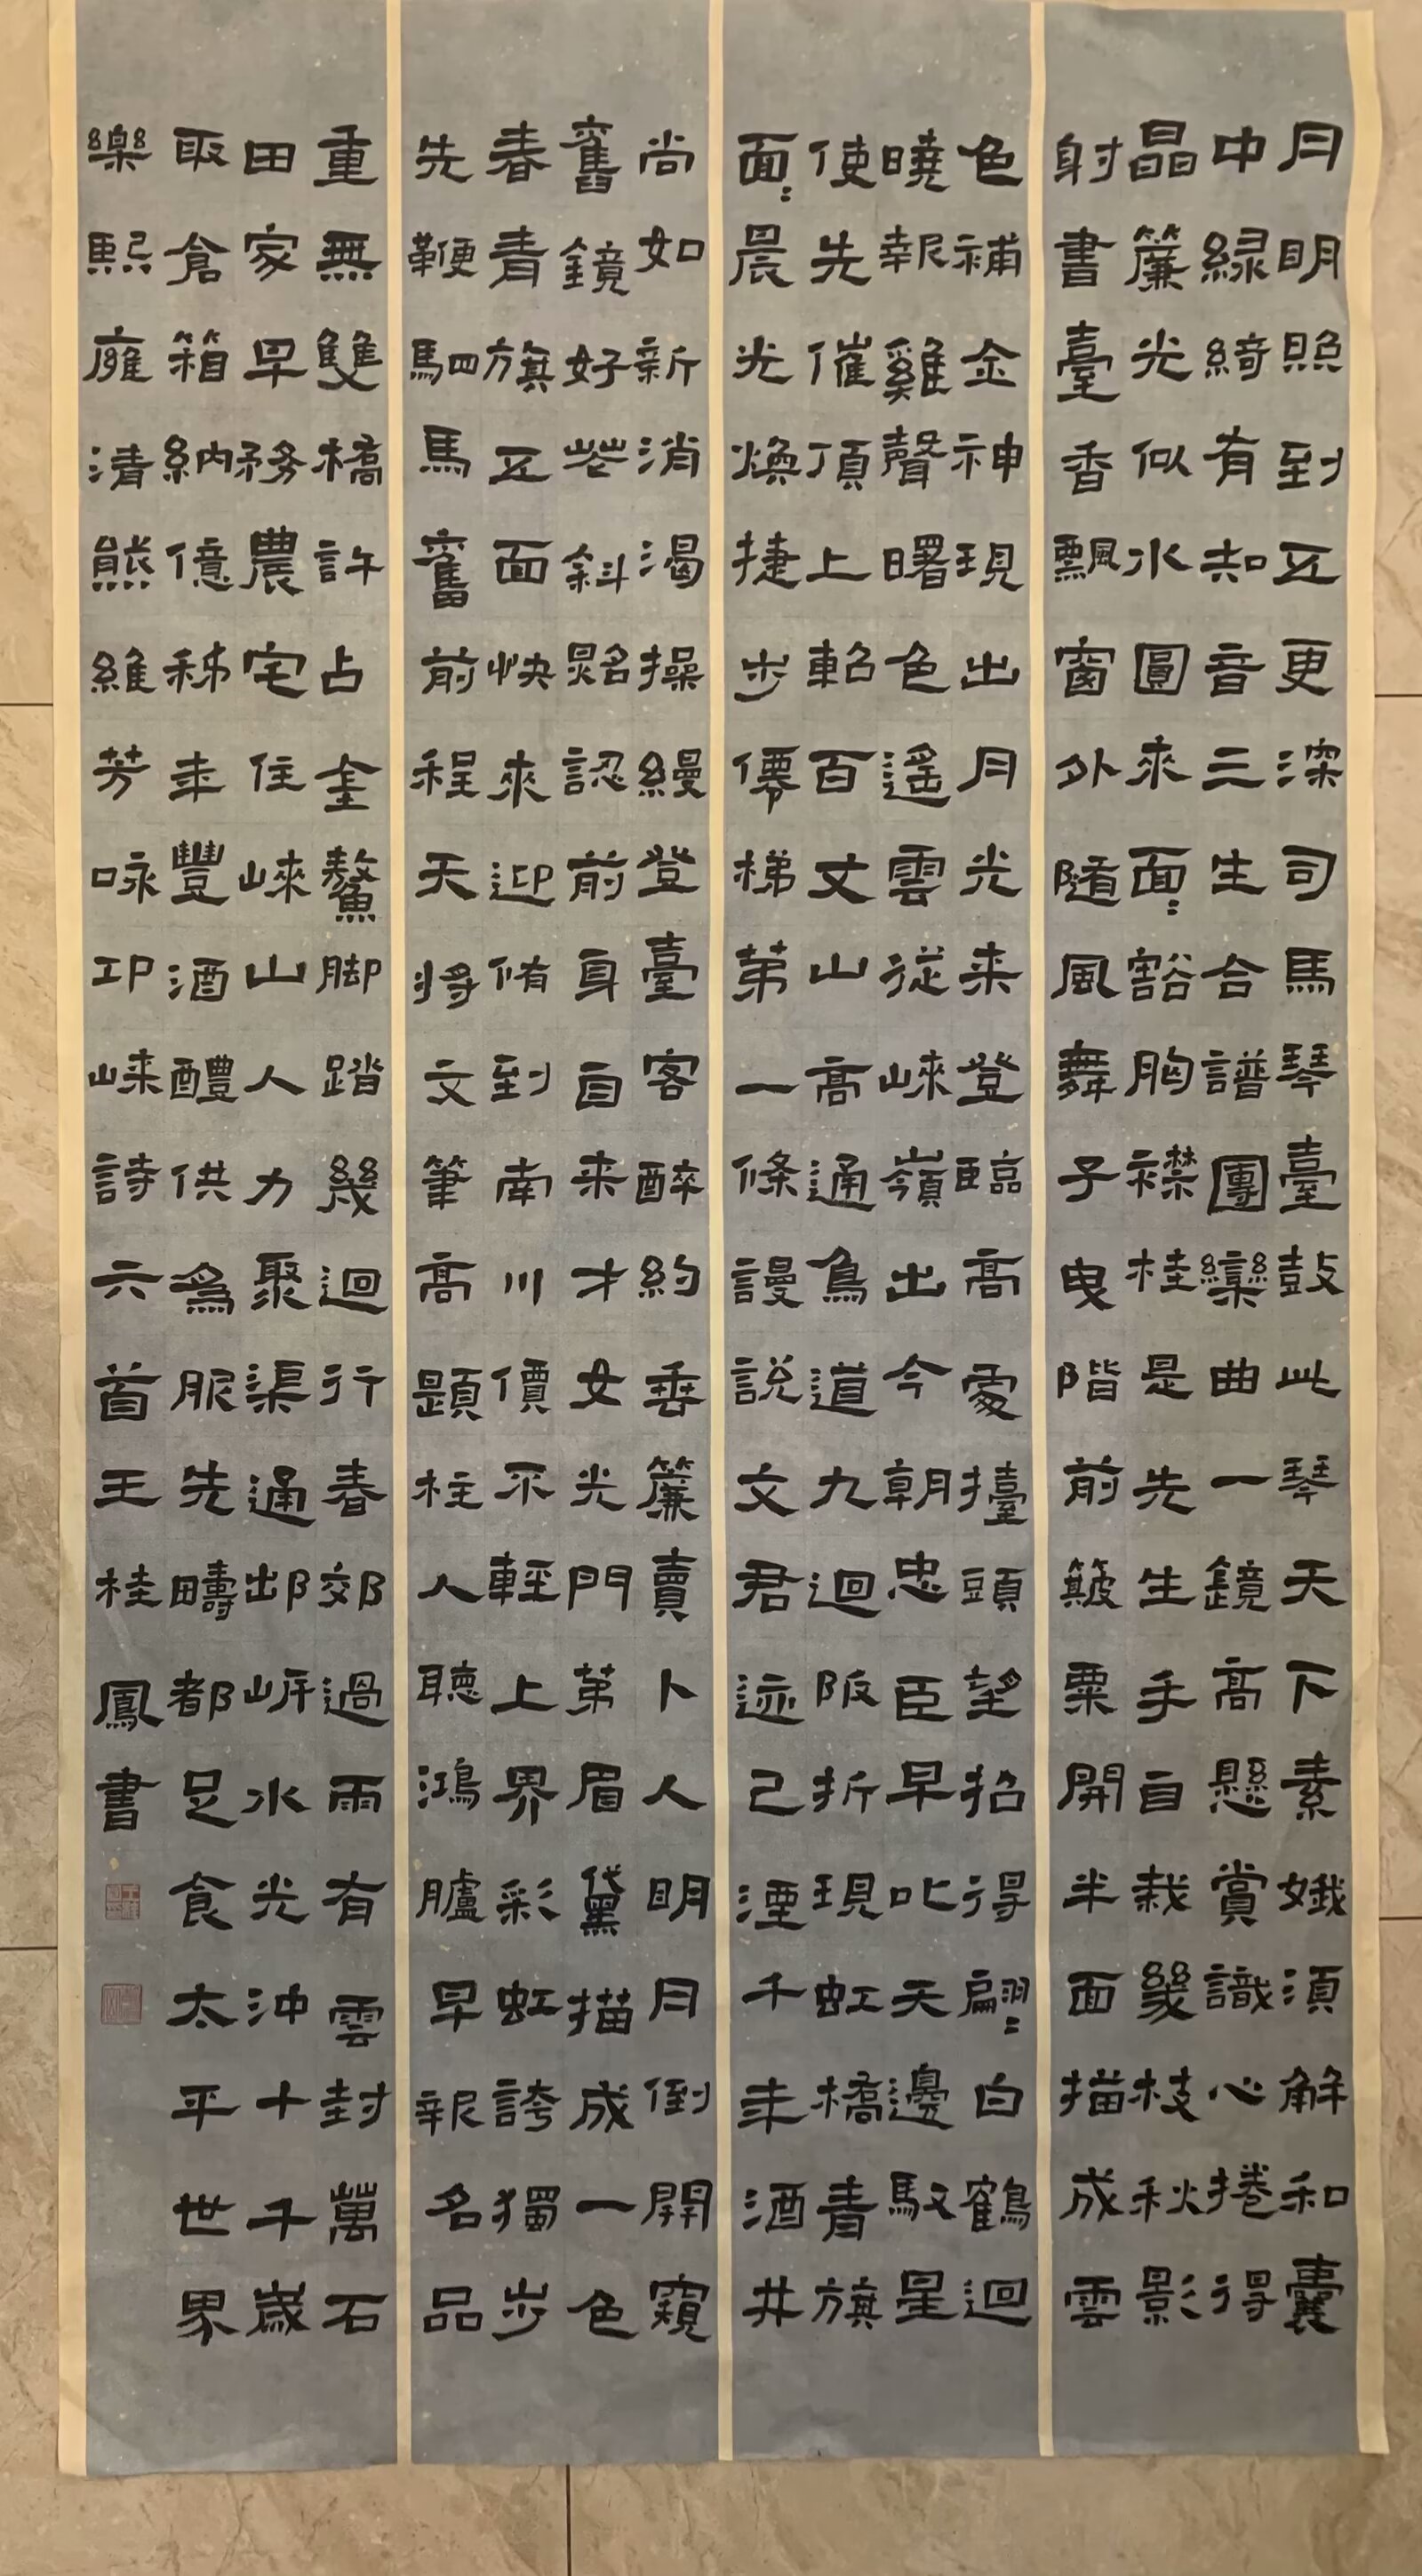 月明照到五更深司馬琴臺鼓此琴天下素娥須解和囊
中綠綺有知音三生合譜團欒曲一鏡高懸賞識心捲得
晶簾光似水圓來面〻豁胸襟桂是先生手自栽幾枝秋影
射書臺香飄窗外隨風舞子曳階前簸粟開半面描成雲
色補金神現出月光来登臨高處擡頭望招得翩〻白鶴迴
曉報雞聲曙色遙雲從崍嶺出今朝忠臣早叱天邊馭星
使先催頂上軺百丈山高通鳥道九迴阪折現虹橋青旗
面〻晨光煥捷步僊梯第一條謾說文君迹已湮千年酒井
尚如新消渴操縵登臺客醉約垂簾賣卜人明月倒開窺
舊鏡好花斜照認前身自来才女光門第眉黛描成一色
春青旗五面快來迎脩到南川價不輕上界彩虹誇獨步
先鞭駟馬奮前程天將文筆高題柱人聽鴻臚早報名品
重無雙橋許占金鰲脚踏幾迴行春郊過雨有雲封萬石
田家早務農宅住崍山人力聚渠通邛岍水光沖十千歲
取倉箱納億秭年豐酒醴供爲服先疇都足食太平世界
樂熙雍清熊維芳咏邛崍詩六首王桂鳳書